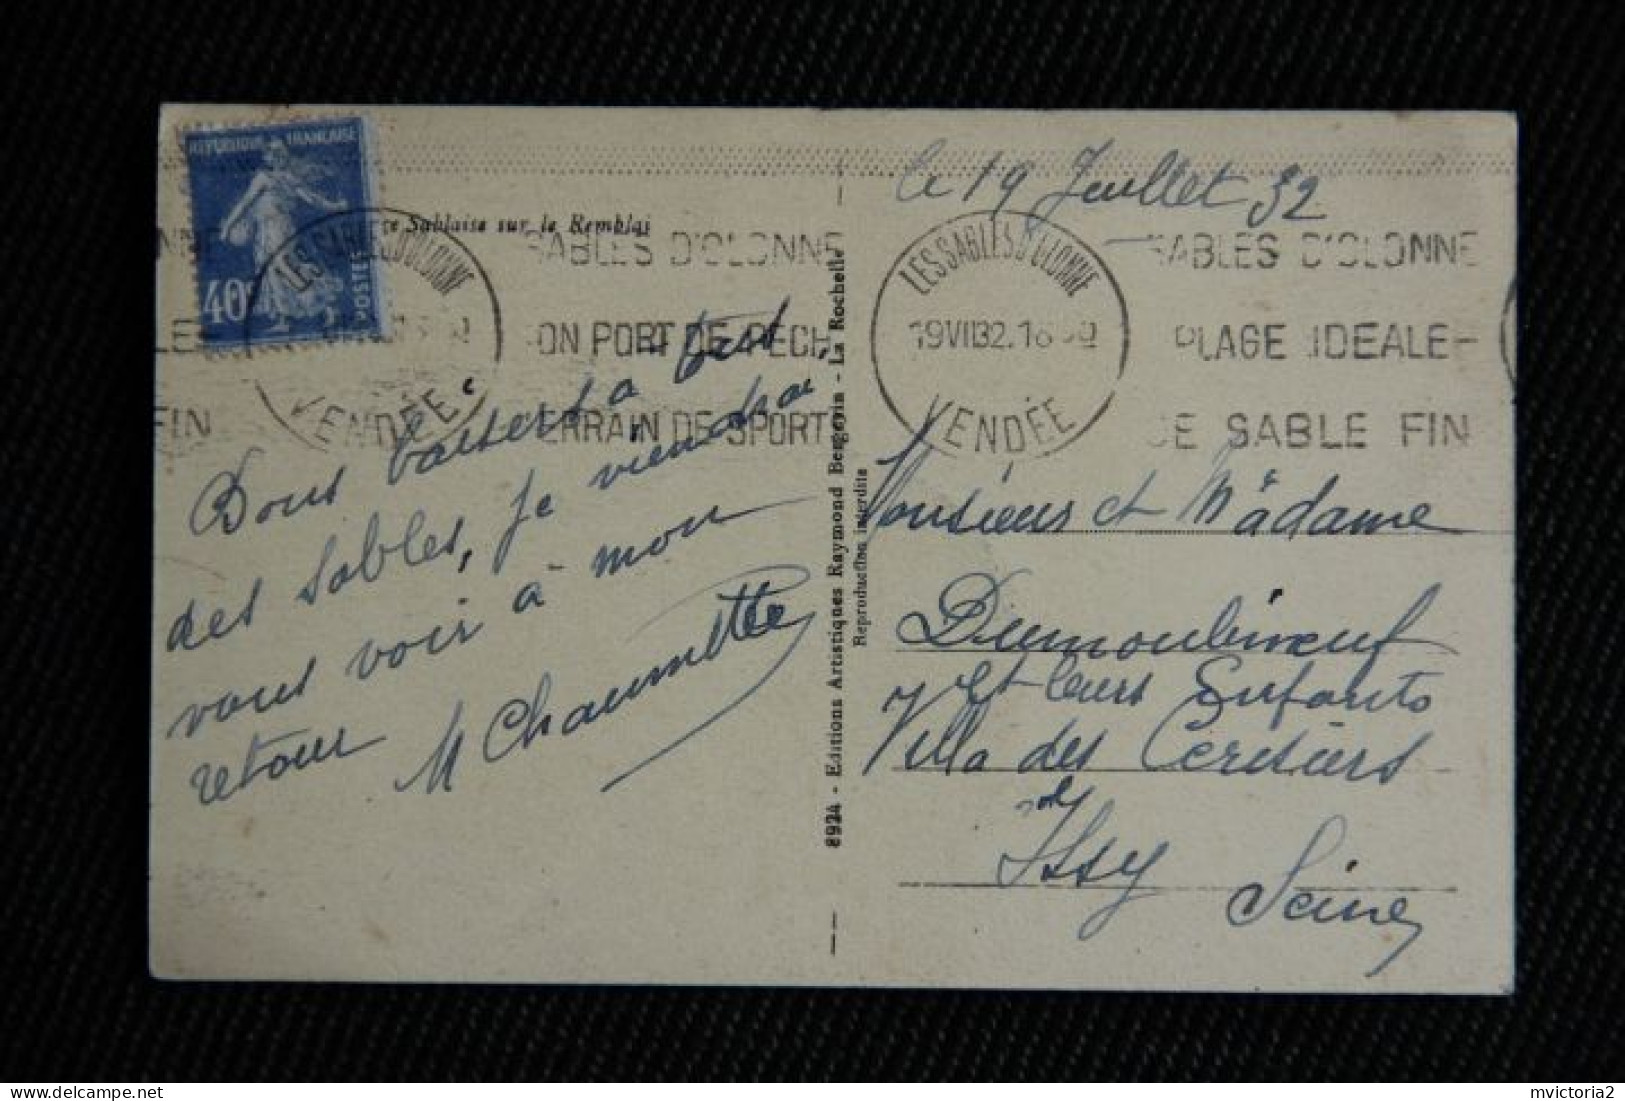 REPUBLIQUE FRANCAISE
40c
POSTES
ce Sablaise sur le Remblai
LES SABLES D'OLONNE
VENDÉE
SABLES D'OLONNE
SON PORT DE PECHE
TERRAIN DE SPORT
LE
FIN
Bons baisers a tous
des Sables, je viendrai
vous voir à mon
retour
M Chaumette
8924 - Editions Artistiques Raymond Bergevin - La Rochelle
Reproduction interdite
le 19 Juillet 32
LES SABLES D'OLONNE
19 VII 32. 16 30
VENDÉE
SABLES D'OLONNE
PLAGE IDEALE
DE SABLE FIN
Monsieur et Madame
Dumoulineuf
Et leurs Enfants
7 Villa des Cerisiers
Issy
Seine
mvictoria2